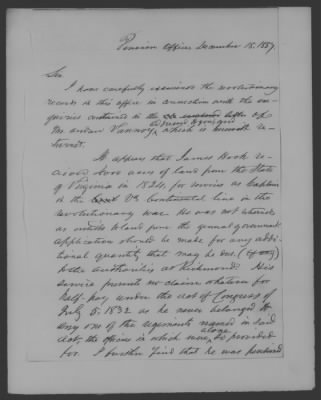 Pension Office December 18. 1857
Sir
I have carefully examined the revolutionary
records in this office in connection with the en-
quiries contained in the letter of
addressed to you, and
Mr. Vannoy, which is herewith re-
turned.
It appears that James Hook re-
ceived 4000 acres of land from the State
of Virginia in 1824, for services as Captain
in the Va Continental line in the
revolutionary war. He was not
as entitled to land from the general government
application should be made for any addi-
tional quantity that may be due (if any)
to the authorities at Richmond. His
service presents no claim whatever for
half-pay under the act of Congress of
July 5. 1832 as he never belonged to
any one of the regiments named in said
alone
act, the officers in which were, so provided
for. I further find that he was pensioned